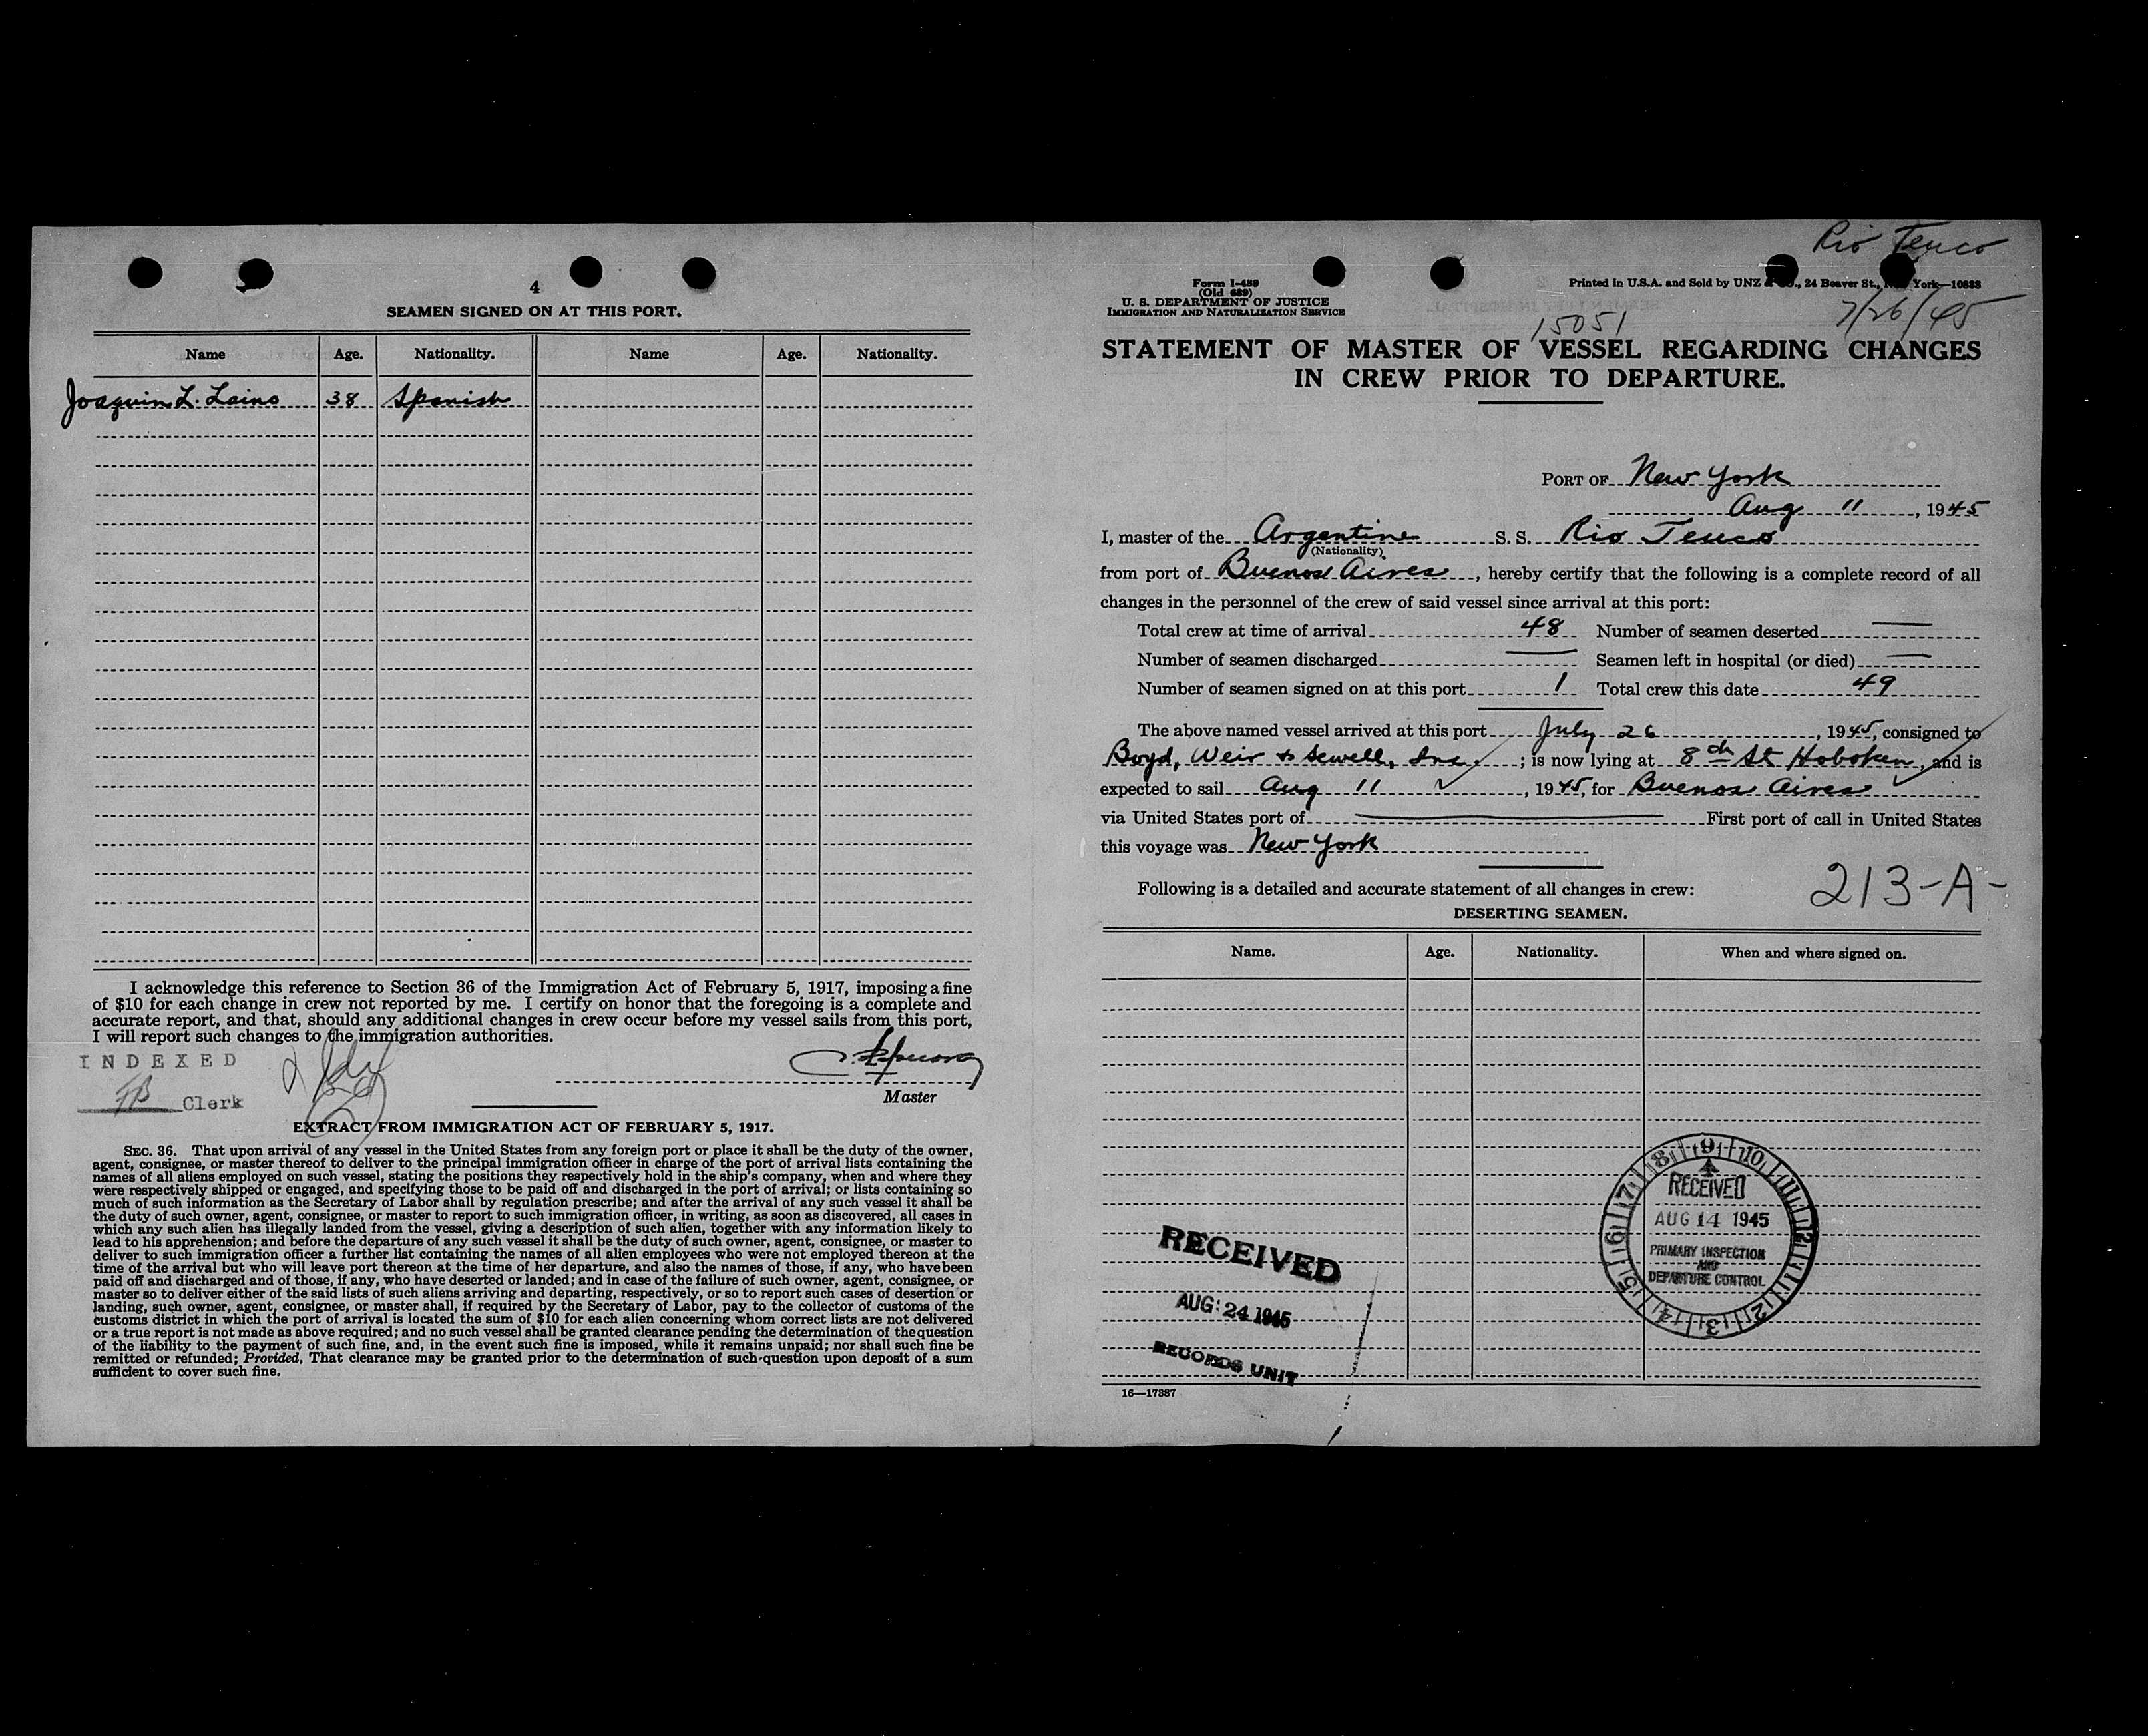 4
SEAMEN SIGNED ON AT THIS PORT.
Name Age. Nationality. Name Age. Nationality.
Joaquin L. Laino 38 Spanish
I acknowledge this reference to Section 36 of the Immigration Act of February 5, 1917, imposing a fine
of $10 for each change in crew not reported by me. I certify on honor that the foregoing is a complete and
accurate report, and that, should any additional changes in crew occur before my vessel sails from this port,
I will report such changes to the immigration authorities.
INDEXED
Clerk
Master
EXTRACT FROM IMMIGRATION ACT OF FEBRUARY 5, 1917.
SEC. 36. That upon arrival of any vessel in the United States from any foreign port or place it shall be the duty of the owner,
agent, consignee, or master thereof to deliver to the principal immigration officer in charge of the port of arrival lists containing the
names of all aliens employed on such vessel, stating the positions they respectively hold in the ship's company, when and where they
were respectively shipped or engaged, and specifying those to be paid off and discharged in the port of arrival; or lists containing so
much of such information as the Secretary of Labor shall by regulation prescribe; and after the arrival of any such vessel it shall be
the duty of such owner, agent, consignee, or master to report to such immigration officer, in writing, as soon as discovered, all cases in
which any such alien has illegally landed from the vessel, giving a description of such alien, together with any information likely to
lead to his apprehension; and before the departure of any such vessel it shall be the duty of such owner, agent, consignee, or master to
deliver to such immigration officer a further list containing the names of all alien employees who were not employed thereon at the
time of the arrival but who will leave port thereon at the time of her departure, and also the names of those, if any, who have been
paid off and discharged and of those, if any, who have deserted or landed; and in case of the failure of such owner, agent, consignee, or
master so to deliver either of the said lists of such aliens arriving and departing, respectively, or so to report such cases of desertion or
landing, such owner, agent, consignee, or master shall, if required by the Secretary of Labor, pay to the collector of customs of the
customs district in which the port of arrival is located the sum of $10 for each alien concerning whom correct lists are not delivered
or a true report is not made as above required; and no such vessel shall be granted clearance pending the determination of the question
of the liability to the payment of such fine, and, in the event such fine is imposed, while it remains unpaid; nor shall such fine be
remitted or refunded; Provided, That clearance may be granted prior to the determination of such question upon deposit of a sum
sufficient to cover such fine.
Rio Teuco
Form I-489
(Old 689)
U. S. DEPARTMENT OF JUSTICE
IMMIGRATION AND NATURALIZATION SERVICE
Printed in U.S.A. and Sold by UNZ & Co., 24 Beaver St., New York—10838
7/26/45
15051
STATEMENT OF MASTER OF VESSEL REGARDING CHANGES
IN CREW PRIOR TO DEPARTURE.
PORT OF New York
Aug 11, 1945
I, master of the Argentine S. S. Rio Teuco
(Nationality)
from port of Buenos Aires, hereby certify that the following is a complete record of all
changes in the personnel of the crew of said vessel since arrival at this port:
Total crew at time of arrival 48 Number of seamen deserted —
Number of seamen discharged — Seamen left in hospital (or died) —
Number of seamen signed on at this port 1 Total crew this date 49
The above named vessel arrived at this port July 26, 1945, consigned to
Boyd, Weir & Sewell, Inc.; is now lying at 8th St Hoboken, and is
expected to sail Aug 11, 1945, for Buenos Aires
via United States port of — First port of call in United States
this voyage was New York
Following is a detailed and accurate statement of all changes in crew:
213-A-
DESERTING SEAMEN.
Name. Age. Nationality. When and where signed on.
8 9 10 11 12 1 2 3 4 5 6 7
RECEIVED
AUG 14 1945
PRIMARY INSPECTION
AND
DEPARTURE CONTROL
RECEIVED
AUG 24 1945
RECORDS UNIT
16—17387